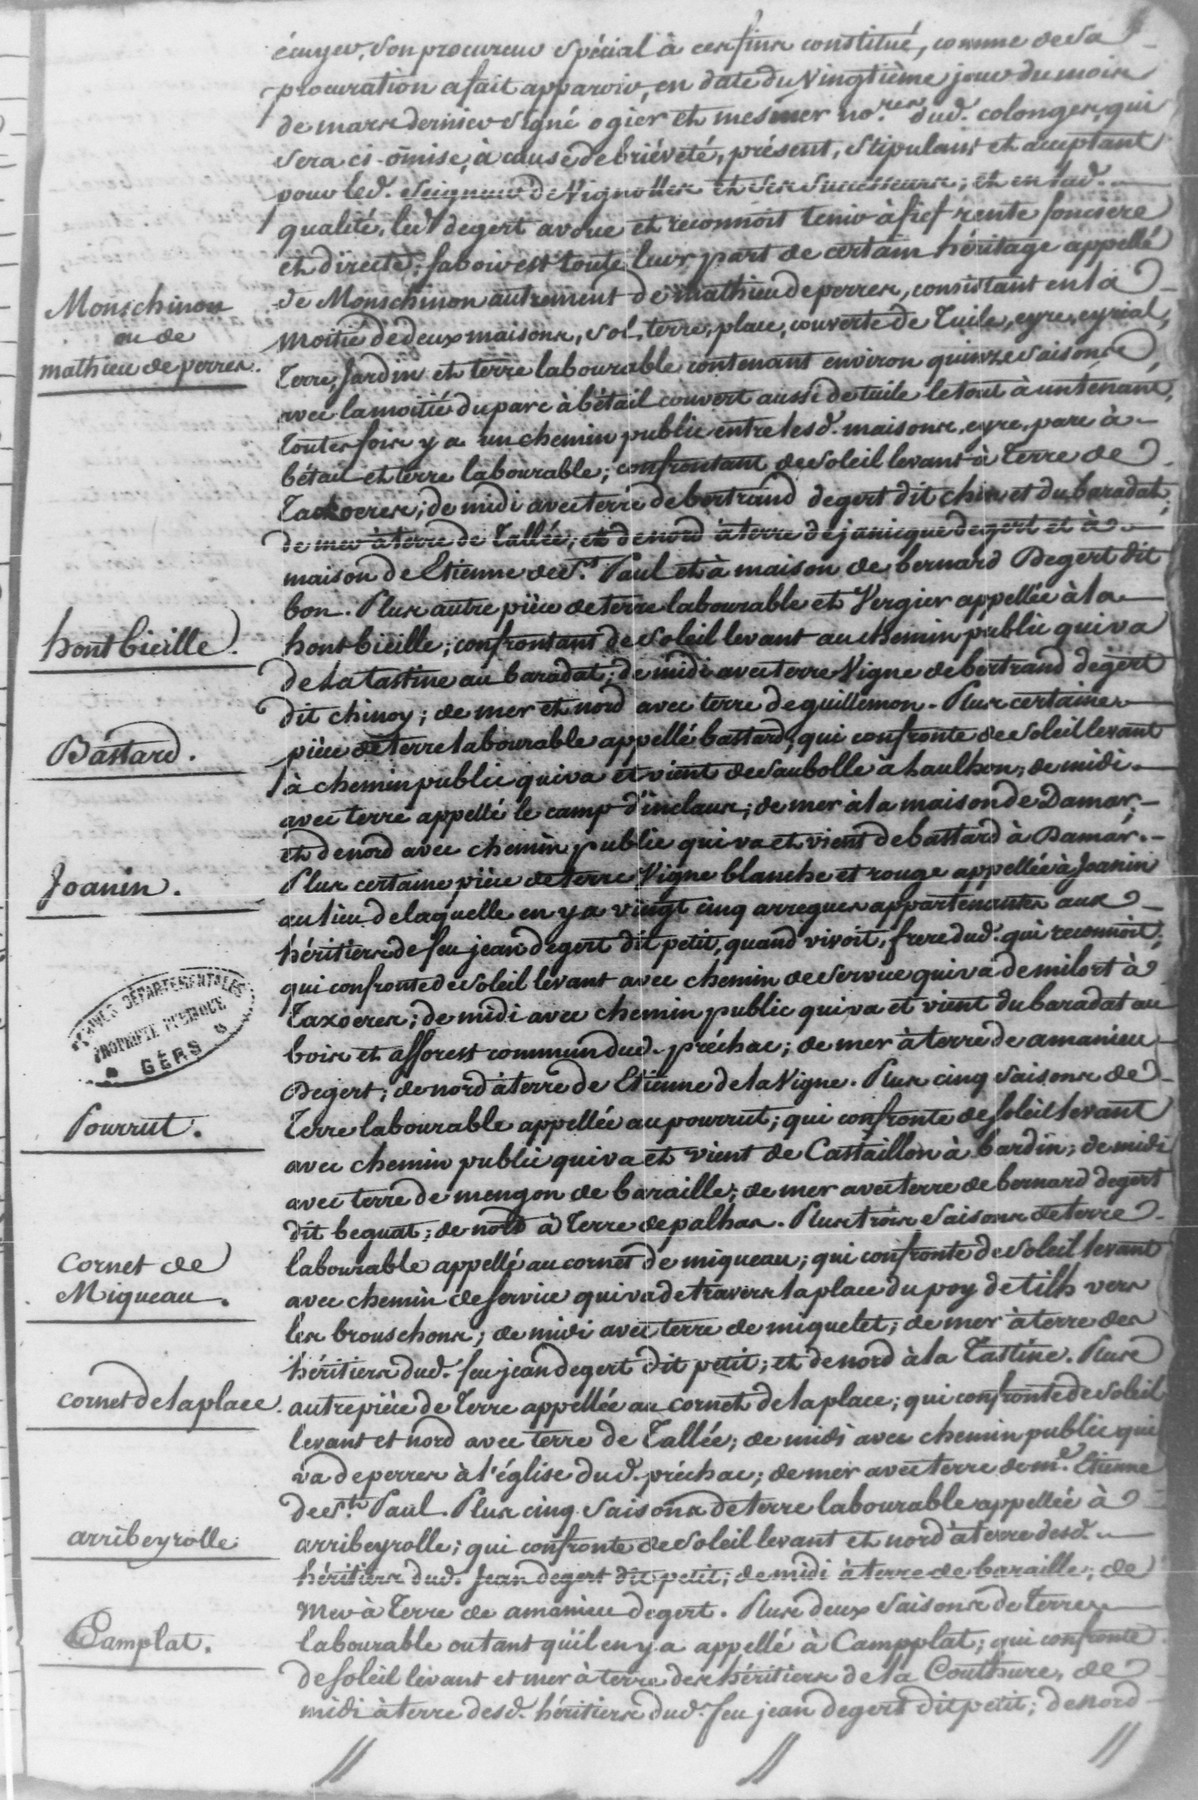 écuyer, son procureur spécial à ces fins constitué, comme de sa
procuration a fait apparoir, en date du vingtième jour du mois
de mars dernier signé ogiér et mesmer no.res dud. colonges, qui
sera ci-ômise, à cause de briéveté, présent, stipulant et acceptant
pour led. Seigneur de Vignolles et ses successeurs; et en lad.
qualité, led. degert avoue et reconnoit tenir à fief rente fonciere
et directe; savoir est toute leur part de certain héritage appellé
Monschinon
ou de
mathieu de perres.
de Monschinon autrement de mathieu de perres, consistant en la
moitié de deux maisons, sol, terre, place, couverte de Tuile, eyre, eyrial,
Terre, Jardin et terre labourable contenant environ quinze saisons
avec la moitié du parc à bétail couvert aussi de tuile le tout à un tenant,
toutes fois y a un chemin public entre lesd. maisons, eyre, parc à
bétail et terre labourable; confrontant de soleil levant à Terre de
Taxoeres; de midi avec terre de bertrand degert dit chin et du baradat,
de mer à terre de Tallée, et de nord à terre de janicque degert et à
maison de Etienne de St. Paul et à maison de bernard Degert dit
bon. Plus autre pièce de terre labourable et Vergier appellée à la
hontbieille.
hontbieille; confrontant de soleil levant au chemin public qui va
de la tastine au baradat; de midi avec terre Vigne de bertrand degert
dit chinoy; de mer et nord avec terre de guillemon. Plus certaine
Bastard.
pièce de terre labourable appellé bastard, qui confronte de soleil levant
à chemin public qui va et vient de saubolle a haulhon; de midi
avec terre appellé le camp d'inclaux; de mer à la maison de Damar,
et de nord avec chemin public qui va et vient de bastard à Damar.
Joanin.
Plus certaine pièce de terre Vigne blanche et rouge appellée à Joanin
au lieu de laquelle en y a vingt cinq arregues appartenantes aux
héritiers de feu jean degert dit petit, quand vivoit, frere dud. qui reconnoit,
qui confronte de soleil levant avec chemin de service qui va de milort à
Taxoeres; de midi avec chemin public qui va et vient du baradat au
ARCHIVES DÉPARTEMENTALES
PROPRIÉTÉ PUBLIQUE
GERS
bois et afforest commun dud. préchac; de mer à terre de amanieu
Degert; de nord à terre de Etienne de la Vigne. Plus cinq saisons de
Pourrut.
Terre labourable appellée au pourrut; qui confronte de soleil levant
avec chemin public qui va et vient de Castaillon à bardin; de midi
avec terre de mengon de baraille; de mer avec terre de bernard degert
dit beguat; de nord à Terre de palhas. Plus trois saisons de terre
Cornet de
Miqueau.
labourable appellé au cornet de miqueau; qui confronte de soleil levant
avec chemin de service qui va de travers la place du poy de tilh vers
les brouschons; de midi avec terre de miquelet; de mer à terre des
héritiers dud. feu jean degert dit petit; et de nord à la Tastine. Plus
cornet de la place.
autre pièce de Terre appellée au cornet de la place; qui confronte de soleil
levant et nord avec terre de Tallée; de midi avec chemin public qui
va de perres à l'église dud. préchac; de mer avec terre de me. Etienne
de St. Paul. Plus cinq saisons de terre labourable appellée à
arribeyrolle
arribeyrolle; qui confronte de soleil levant et nord à terre desd.
héritiers dud. Jean degert dit petit; de midi à terre de baraille; de
Mer à Terre de amanieu degert. Plus deux saisons de Terre
Camplat.
labourable ou tant qu'il en y a appellé à Campplat; qui confronte
de soleil levant et mer à terre des héritiers de la Couthure, de
midi à terre desd. héritiers dud. feu jean degert dit petit; de nord